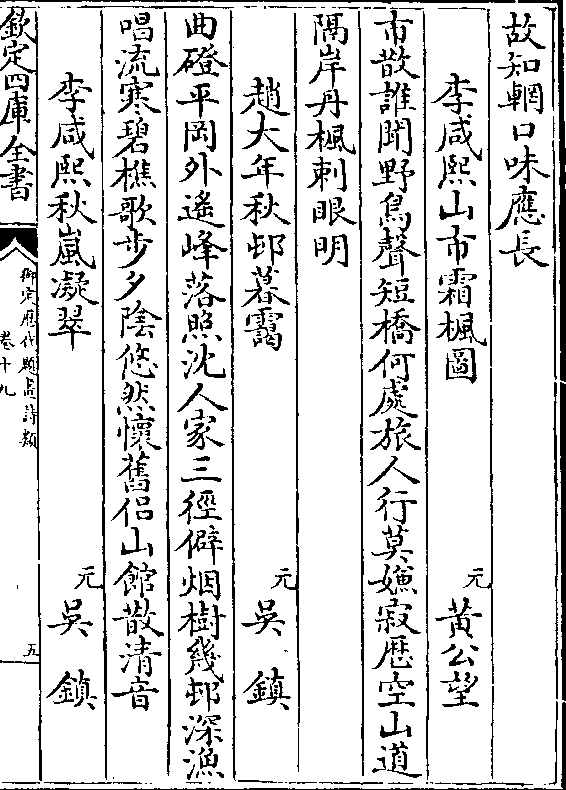 故知輞口味應長
李咸熙山市霜楓圖　元　黃公望
市散誰聞野鳥聲短橋何處旅人行莫嫌寂歷空山道
隔岸丹楓刺眼明
趙大年秋邨暮靄　元　吳　鎮
曲磴平岡外遙峰落照沈人家三徑僻烟樹幾邨深漁
唱流寒碧樵歌步夕陰悠然懷舊侶山館散清音
李咸熙秋嵐凝翠　元　吳　鎮
欽定四庫全書
御定歷代題畫詩類
卷十九
五